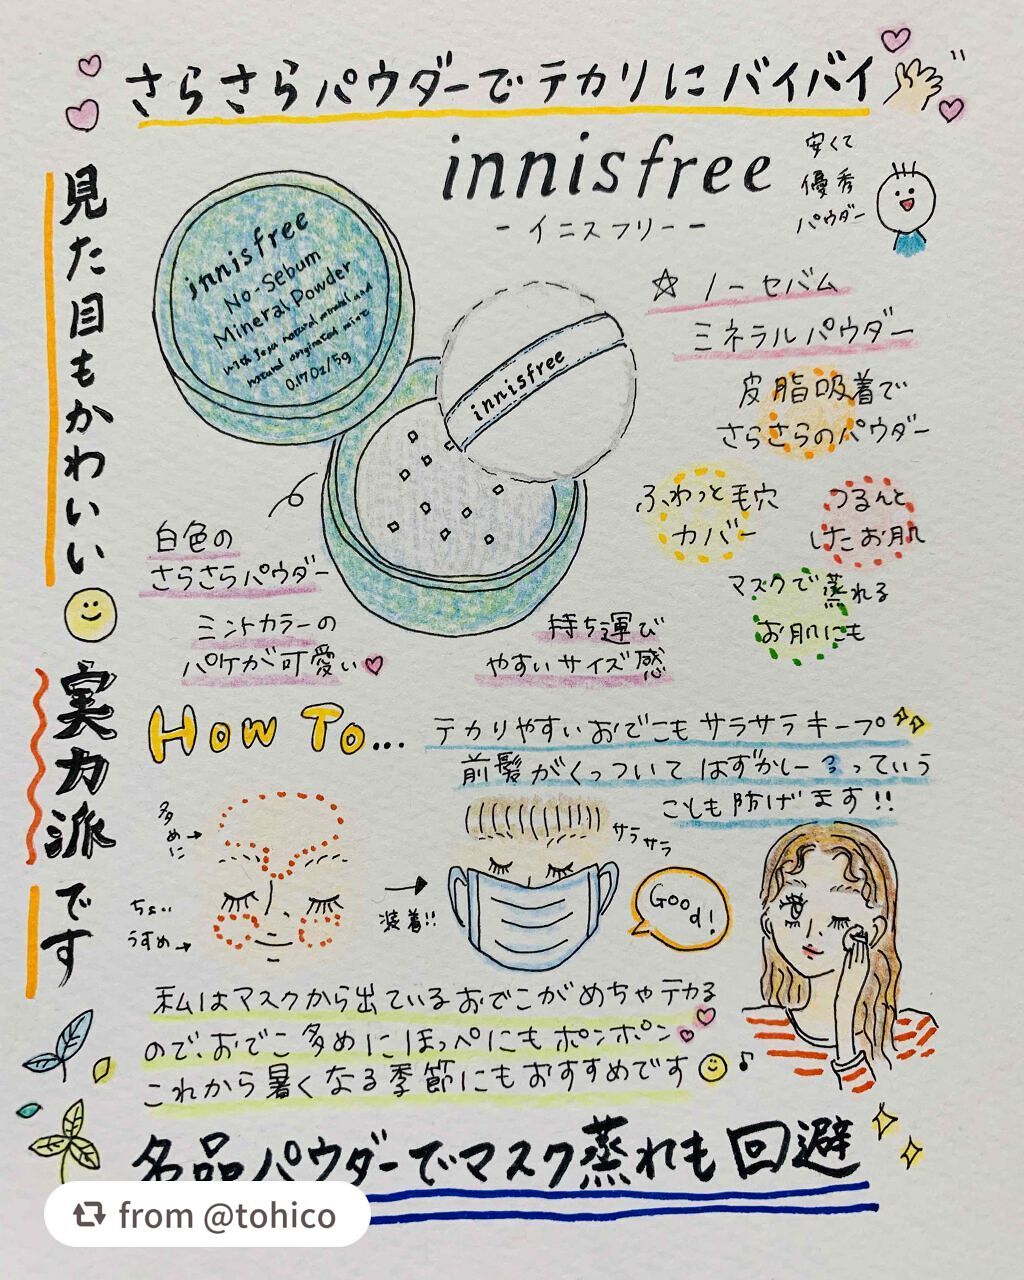 さらさらパウダーでテカリにバイバイ
見た目もかわいい
実力派です
innisfree
-イニスフリー-
安くて
優秀
パウダー
innisfree
No-Sebum
Mineral Powder
with Jeju natural mineral and
natural originated mint
0.17 Oz/5g
innisfree
☆ノーセバム
ミネラルパウダー
皮脂吸着で
さらさらのパウダー
ふわっと毛穴
カバー
つるんと
したお肌
マスクで蒸れる
お肌にも
白色の
さらさらパウダー
ミントカラーの
パケが可愛い♡
持ち運び
やすいサイズ感
HOW TO...
テカりやすいおでこもサラサラキープ
前髪がくっついてはずかしーるっていう
ことも防げます!!
多めに→
ちょい
うすめ→
装着!!
サラサラ
Good!
私はマスクから出ているおでこがめちゃテカる
ので、おでこ多めにほっぺにもポンポン♡♡
これから暑くなる季節にもおすすめです♪
名品パウダーでマスク蒸れも回避
from @tohico